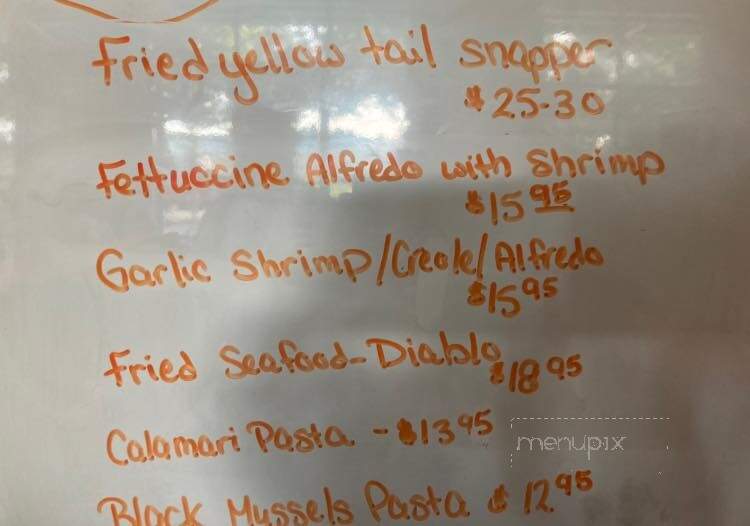 Fried yellow tail snapper
$25-30
Fettuccine Alfredo with Shrimp
$15 95
Garlic Shrimp/Creole/Alfredo
$15 95
Fried Seafood-Diablo
$18 95
Calamari Pasta - $13 95
menupix
Black Mussels Pasta $12 95